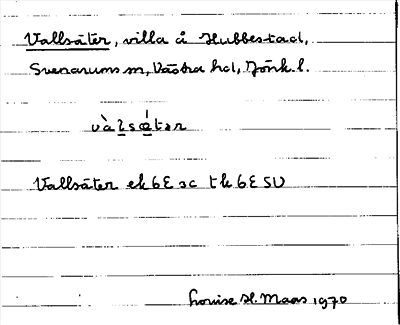 Vallsäter, villa å Hubbestad,
Svenarums sn, Västra hd, Jönk. l.
và l s ǽ t ər
Vallsäter ek 6E sc tk 6E SV
Louise H. Maas 1970